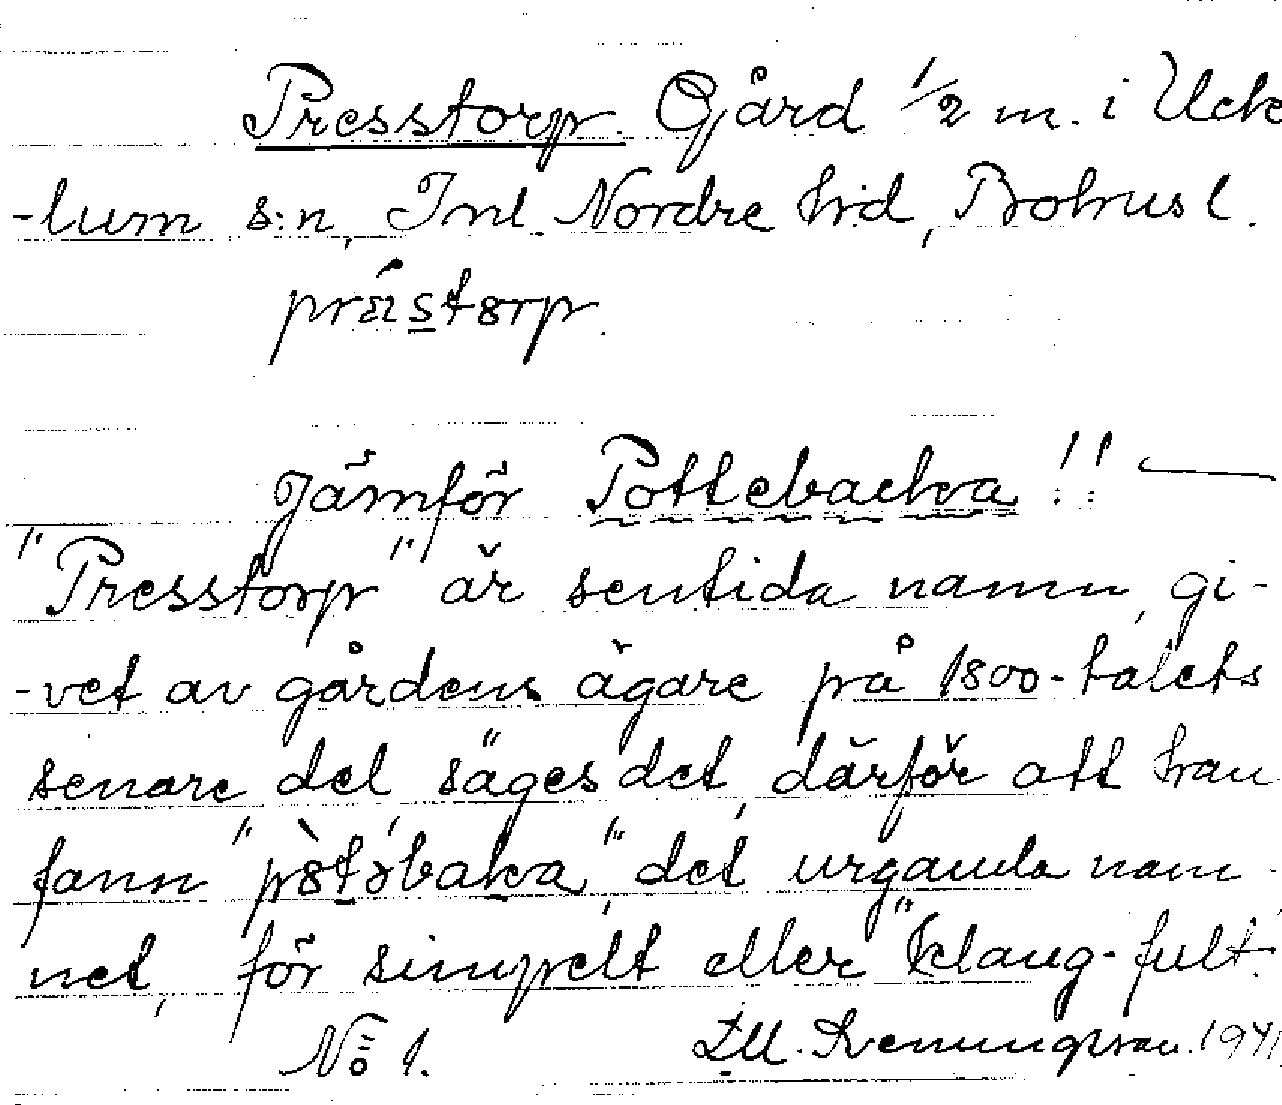 Presstorp. Gård 1/2 m. i Uck
-lum s:n, Inl. Nordre hrd, Bohusl.
präs̲torp.
Jämför Pottebacka!! —
"Presstorp" är sentida namn, gi-
-vet av gårdens ägare på 1800-talets
senare del säges det, därför att han
fann "pòtəbaka", det urgamla nam-
net, för simpelt eller "klang-fult".
No 1. 1941